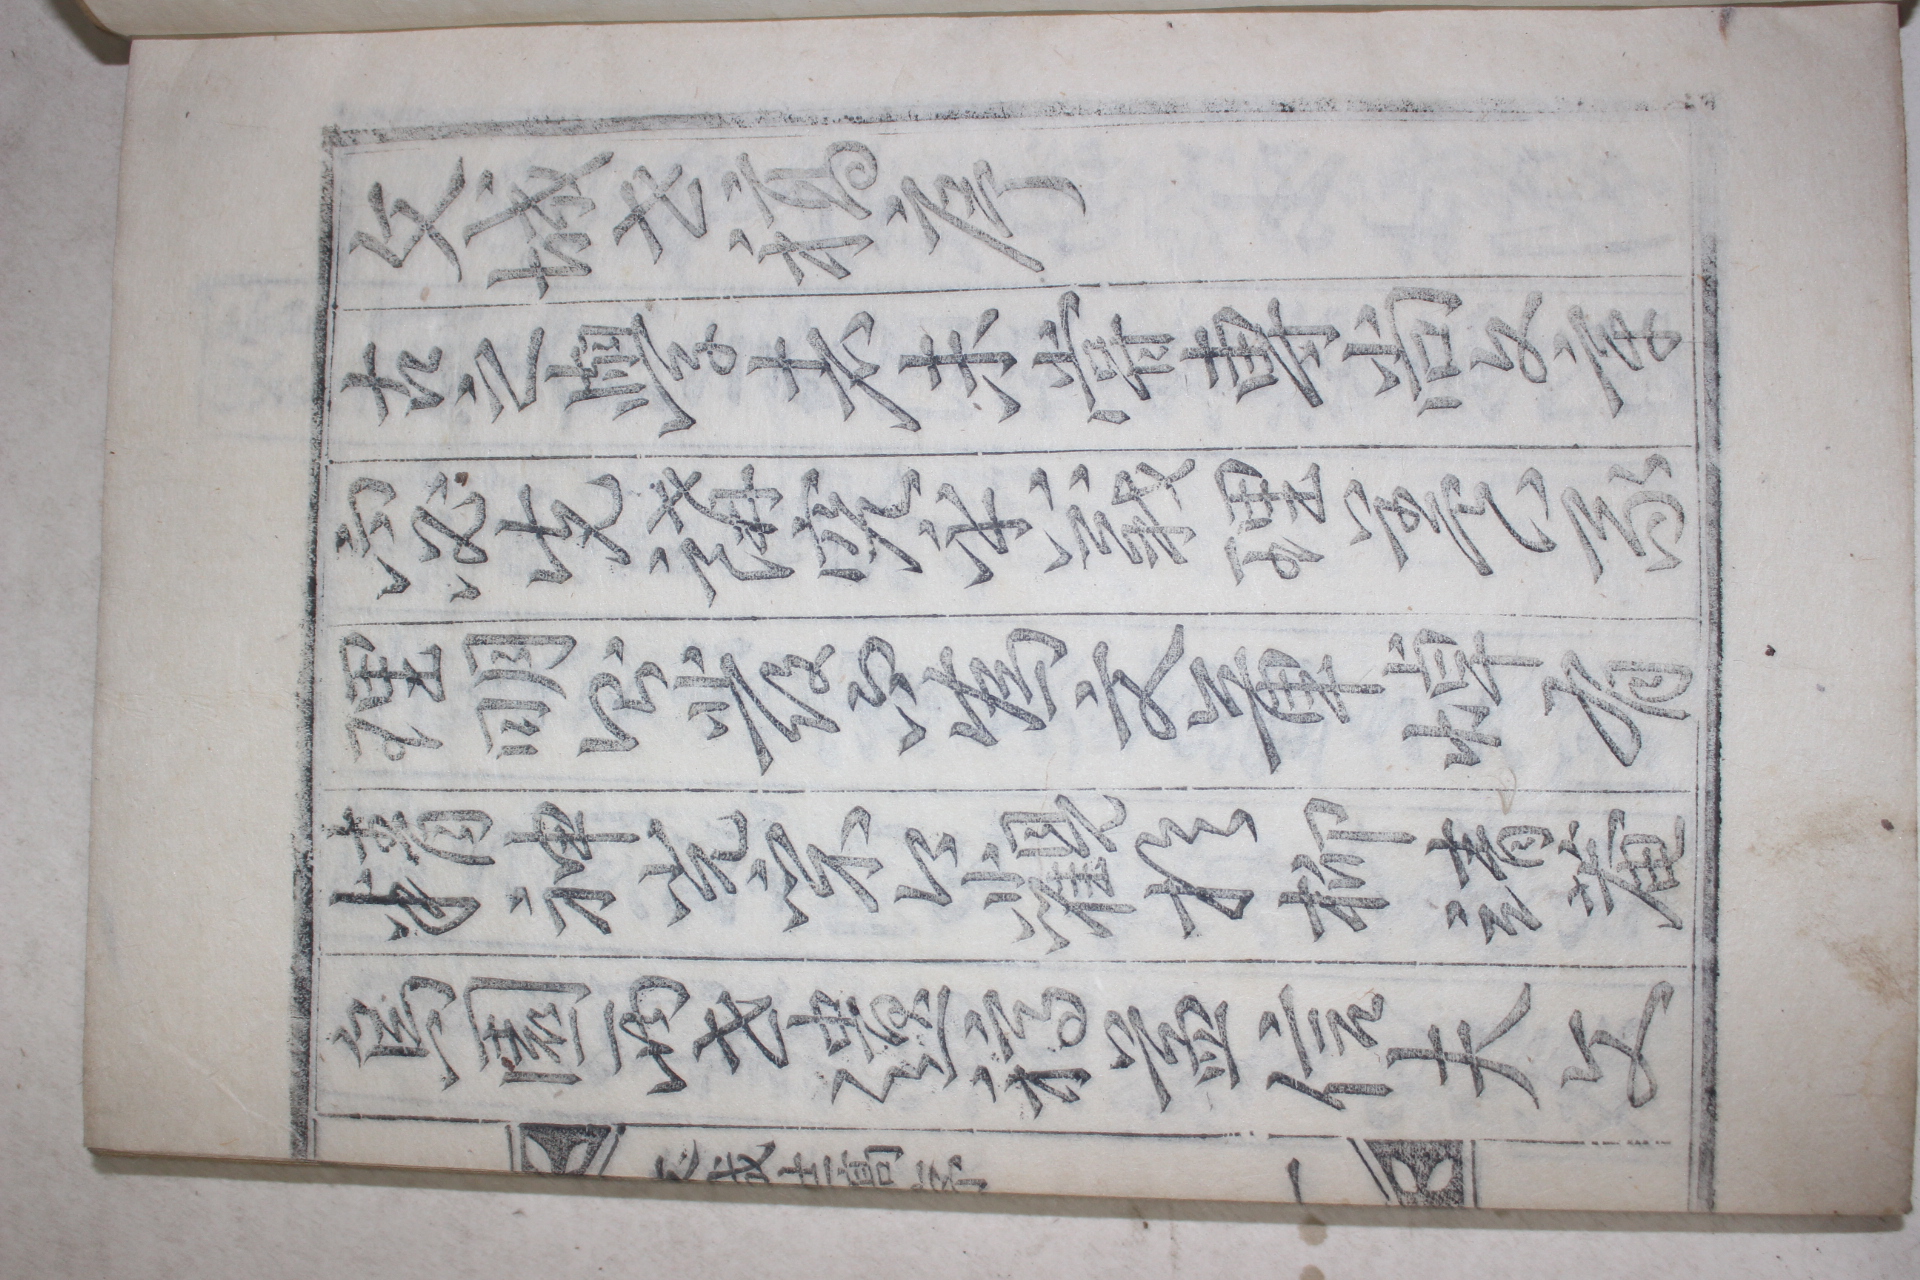 文城世稿序
古之學者未嘗專尚文章
而必先講究乎義理盖以爲
理明則發而爲文章煒有
精神光彩今觀於柳靖菴
烏園兩世遺稿益信夫文
文城世稿序
一